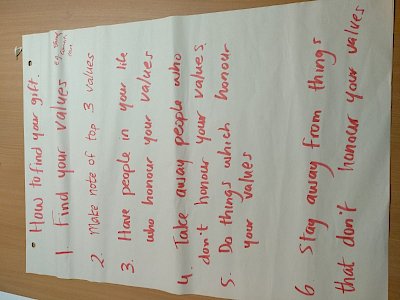 How to find your gift.
1. Find your values e.g.
2. Make note of top 3 values
3. Have people in your life
who honour your values
4. Take away people who
don't honour your values.
5. Do things which honour
your values
6. Stay away from things
that don't honour your values